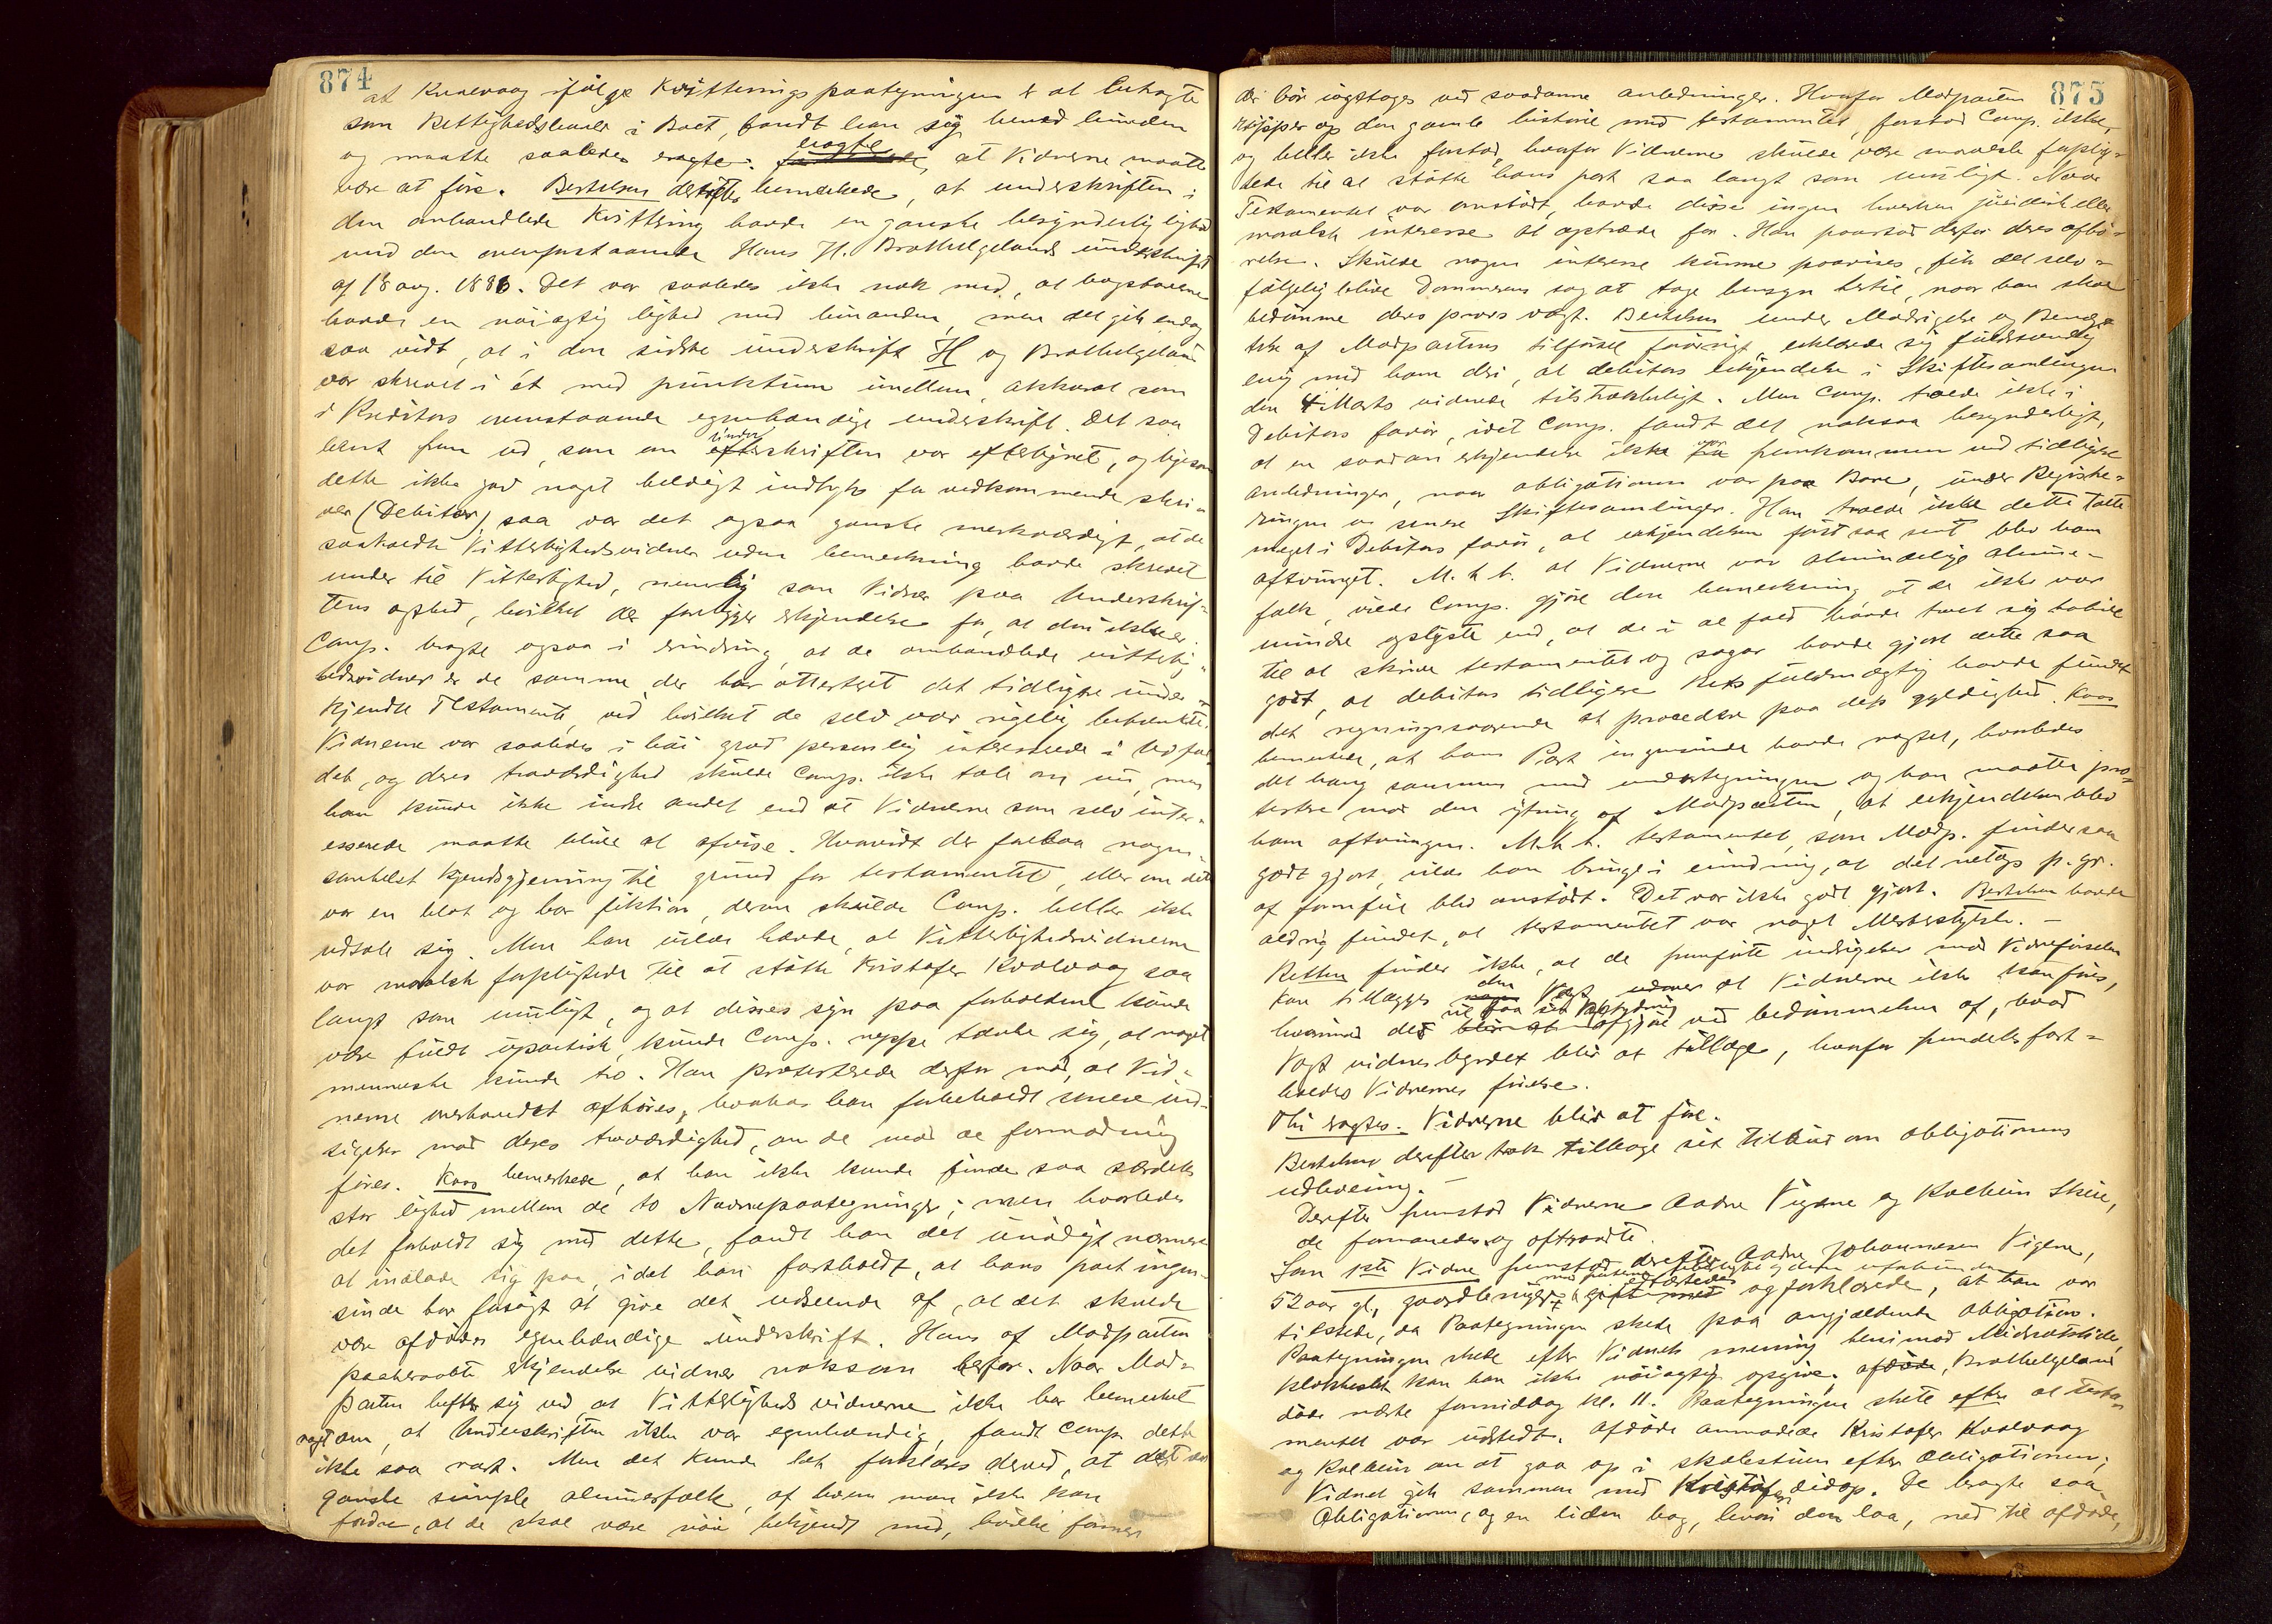 874
at Kvalvaag ifølge Kvitteringspaategningen er at betragte
som Rettighedshaver i Boet, fandt han sig herved bunden
og maatte saaledes eragte: eragte, at Vidnerne maatte
være at føre. Bertelsen derefter bemærkede, at underskriften i
den omhandlede Kvittering havde en ganske besynderlig lighed
med den ovenforstaaende Hans H. Brathelgelands underskrift
af 18 aug. 1886. Det var saaledes ikke nok med, at bogstaverne
havde en nøiagtig lighed med hinanden, men det gik endog
saa vidt, at i den sidste underskrift H og Brathelgeland
var skrevet i ét med punktum imellem, akkurat som
i Kreditors ovenstaaende egenhændige underskrift. Det saa
bent frem ud, som om underskriften var eftertegnet, og ligesom
dette ikke gav noget heldigt indtryk for vedkommende skri-
ver (Debitor), saa var det ogsaa ganske merkværdigt, at de
saakaldte Vitterlighedsvidner uden bemerkning havde skrevet
under til Vitterlighed, nemlig som Vidner paa Underskrif-
tens ægthed, hvilket der foreligger erkjendelse for, at den ikke er.
Comp. bragte ogsaa i erindring, at de omhandlede vitterlig-
hedsvidner er de samme, der har attesteret det tidligere under-
kjendte Testamente, ved hvilket de selv var rigelig betænkte.
Vidnerne var saaledes i høi grad personlig interesserede i Udfal-
det, og deres troværdighed skulde Comp. ikke tale om nu, men
han kunde ikke indse andet end at Vidnerne som selv inter-
esserede maatte blive at afvise. Hvorvidt der forelaa nogen-
somhelst kjendsgjerning til grund for testamentet, eller om det
var en blot og bar fiktion, derom skulde Comp. heller ikke
udtale sig. Men han vilde hævde, at Vitterlighedsvidnerne
var moralsk forpligtede til at støtte Kristofer Kvalvaag saa
langt som muligt, og at disses syn paa forholdene kunde
være fuldt upartisk, kunde Comp. neppe tænke sig, at noget
menneske kunde tro. Han protesterede derfor mod, at Vid-
nerne overhovedet afhøres, hvorhos han forbeholdt senere ind-
sigelser mod deres troværdighed, om de mod al formodning
føres. Koos bemerkede, at han ikke kunde finde saa særdeles
stor lighed mellem de to Navnepaategninger; men hvorledes
det forholdt sig med dette, fandt han det unødigt nærmere
at indlade sig paa, idet han fastholdt, at hans part ingen-
sinde har forsøgt at give det udseende af, at det skulde
være afdødes egenhændige underskrift. Hans af Modparten
paaberaabte erkjendelse vidner noksom herfor. Naar Mod-
parten hefter sig ved, at Vitterlighedsvidnerne ikke har bemerket
noget om, at Underskriften ikke var egenhændig, fandt Comp. dette
ikke saa rart. Men det kunde let forklares derved, at det var
ganske simple almuesfolk, af hvem man ikke kan
fordre, at de skal være nøie bekjendt med, hvilke former
875
der bør iagttages ved saadanne anledninger. Hvorfor Modparten
ripper op den gamle historie med testamentet, forstod Comp. ikke,
og heller ikke forstod, hvorfor Vidnerne skulde være moralsk forplig-
tede til at støtte hans part saa langt som muligt. Naar
Testamentet var omstødt, havde disse ingen hverken juridisk eller
moralsk interesse at optræde for. Han paastod derfor deres afhø-
relse. Skulde nogen interesse kunne paavises, fik det selv-
følgelig blive Dommerens sag at tage hensyn hertil, naar han skal
bedømme deres provs vægt. Bertelsen under Modsigelse og Benæg-
telse af Modpartens tilførsel forøvrigt, erklærede sig fuldstændig
enig med ham deri, at debitors erkjendelse i Skiftesamlingen
den 4 Marts vidnede tilstrækkeligt. Men Comp. troede ikke i
Debitors favør, idet Comp. fandt det noksaa besynderligt,
at en saadan erkjendelse ikke var fremkommen ved tidligere
anledninger, naar obligationen var paa Bane, under Registre-
ringen og senere Skiftesamlinger. Han troede ikke dette talte
meget i Debitors favør, at erkjendelsen først saa sent blev ham
aftvunget. M. h. t. at Vidnerne var almindelige almue-
folk, vilde Comp. gjøre den bemerkning, at de ikke var
mindre oplyste end, at de i al fald havde troet sig habile
til at skrive testamentet og sogar havde gjort dette saa
godt, at debitors tidligere Retsfuldmægtig havde fundet
det regningssvarende at procedere paa dets gyldighed. Koos
bemerkede, at hans Part ingensinde havde nægtet, hvorledes
det hang sammen med undertegningen og han maatte pro-
testere mod den ytring af Modparten, at erkjendelsen blev
ham aftvungen. M. h. t. testamentet, som Modp. finder saa
godt gjort, vilde han bringe i erindring, at det netop p. gr.
af formfeil blev omstødt. Det var ikke godt gjort. Bertelsen havde
aldrig fundet, at testamentet var noget Mesterstykke. –
Retten finder ikke, at de fremførte indsigelser mod Vidneførselen
kan tillægges den Vægt at Vidnerne ikke kan føres,
hvorimod det vil faa sit Betydning ved bedømmelsen af, hvad
Vægt vidnesbyrdet blir at tillægge, hvorfor fremdeles fast-
holdes Vidnernes førelse.
Thi eragtes: Vidnerne blir at føre.
Bertelsen derefter trak tilbage sit Tilbud om obligationens
udlevering. –
Derefter fremstod Vidnerne Aadne Vigene og Kolbein Skeie,
de formanedes og aftraadte.
Som 1ste Vidne fremstod derefter Aadne Johannesen Vigene,
52 aar gl., gaardbruger, og forklarede, at han var
tilstede, da Paategningen skede paa angjældende obligation.
Paategningen skede efter Vidnets mening henimod Midnatstide,
klokkeslet kan han ikke nøiagtig opgive. Brathelgeland
døde næste formiddag kl. 11. Paategningen skete efter at Testa-
mentet var udstedt. Afdøde anmodede Kristofer Kvalvaag
og Kolbein om at gaa op i skolestuen efter Obligationen;
Vidnet gik sammen med Kristofer didop. De bragte saa
Obligationen, og en liden bog, hvori den laa, ned til afdøde,